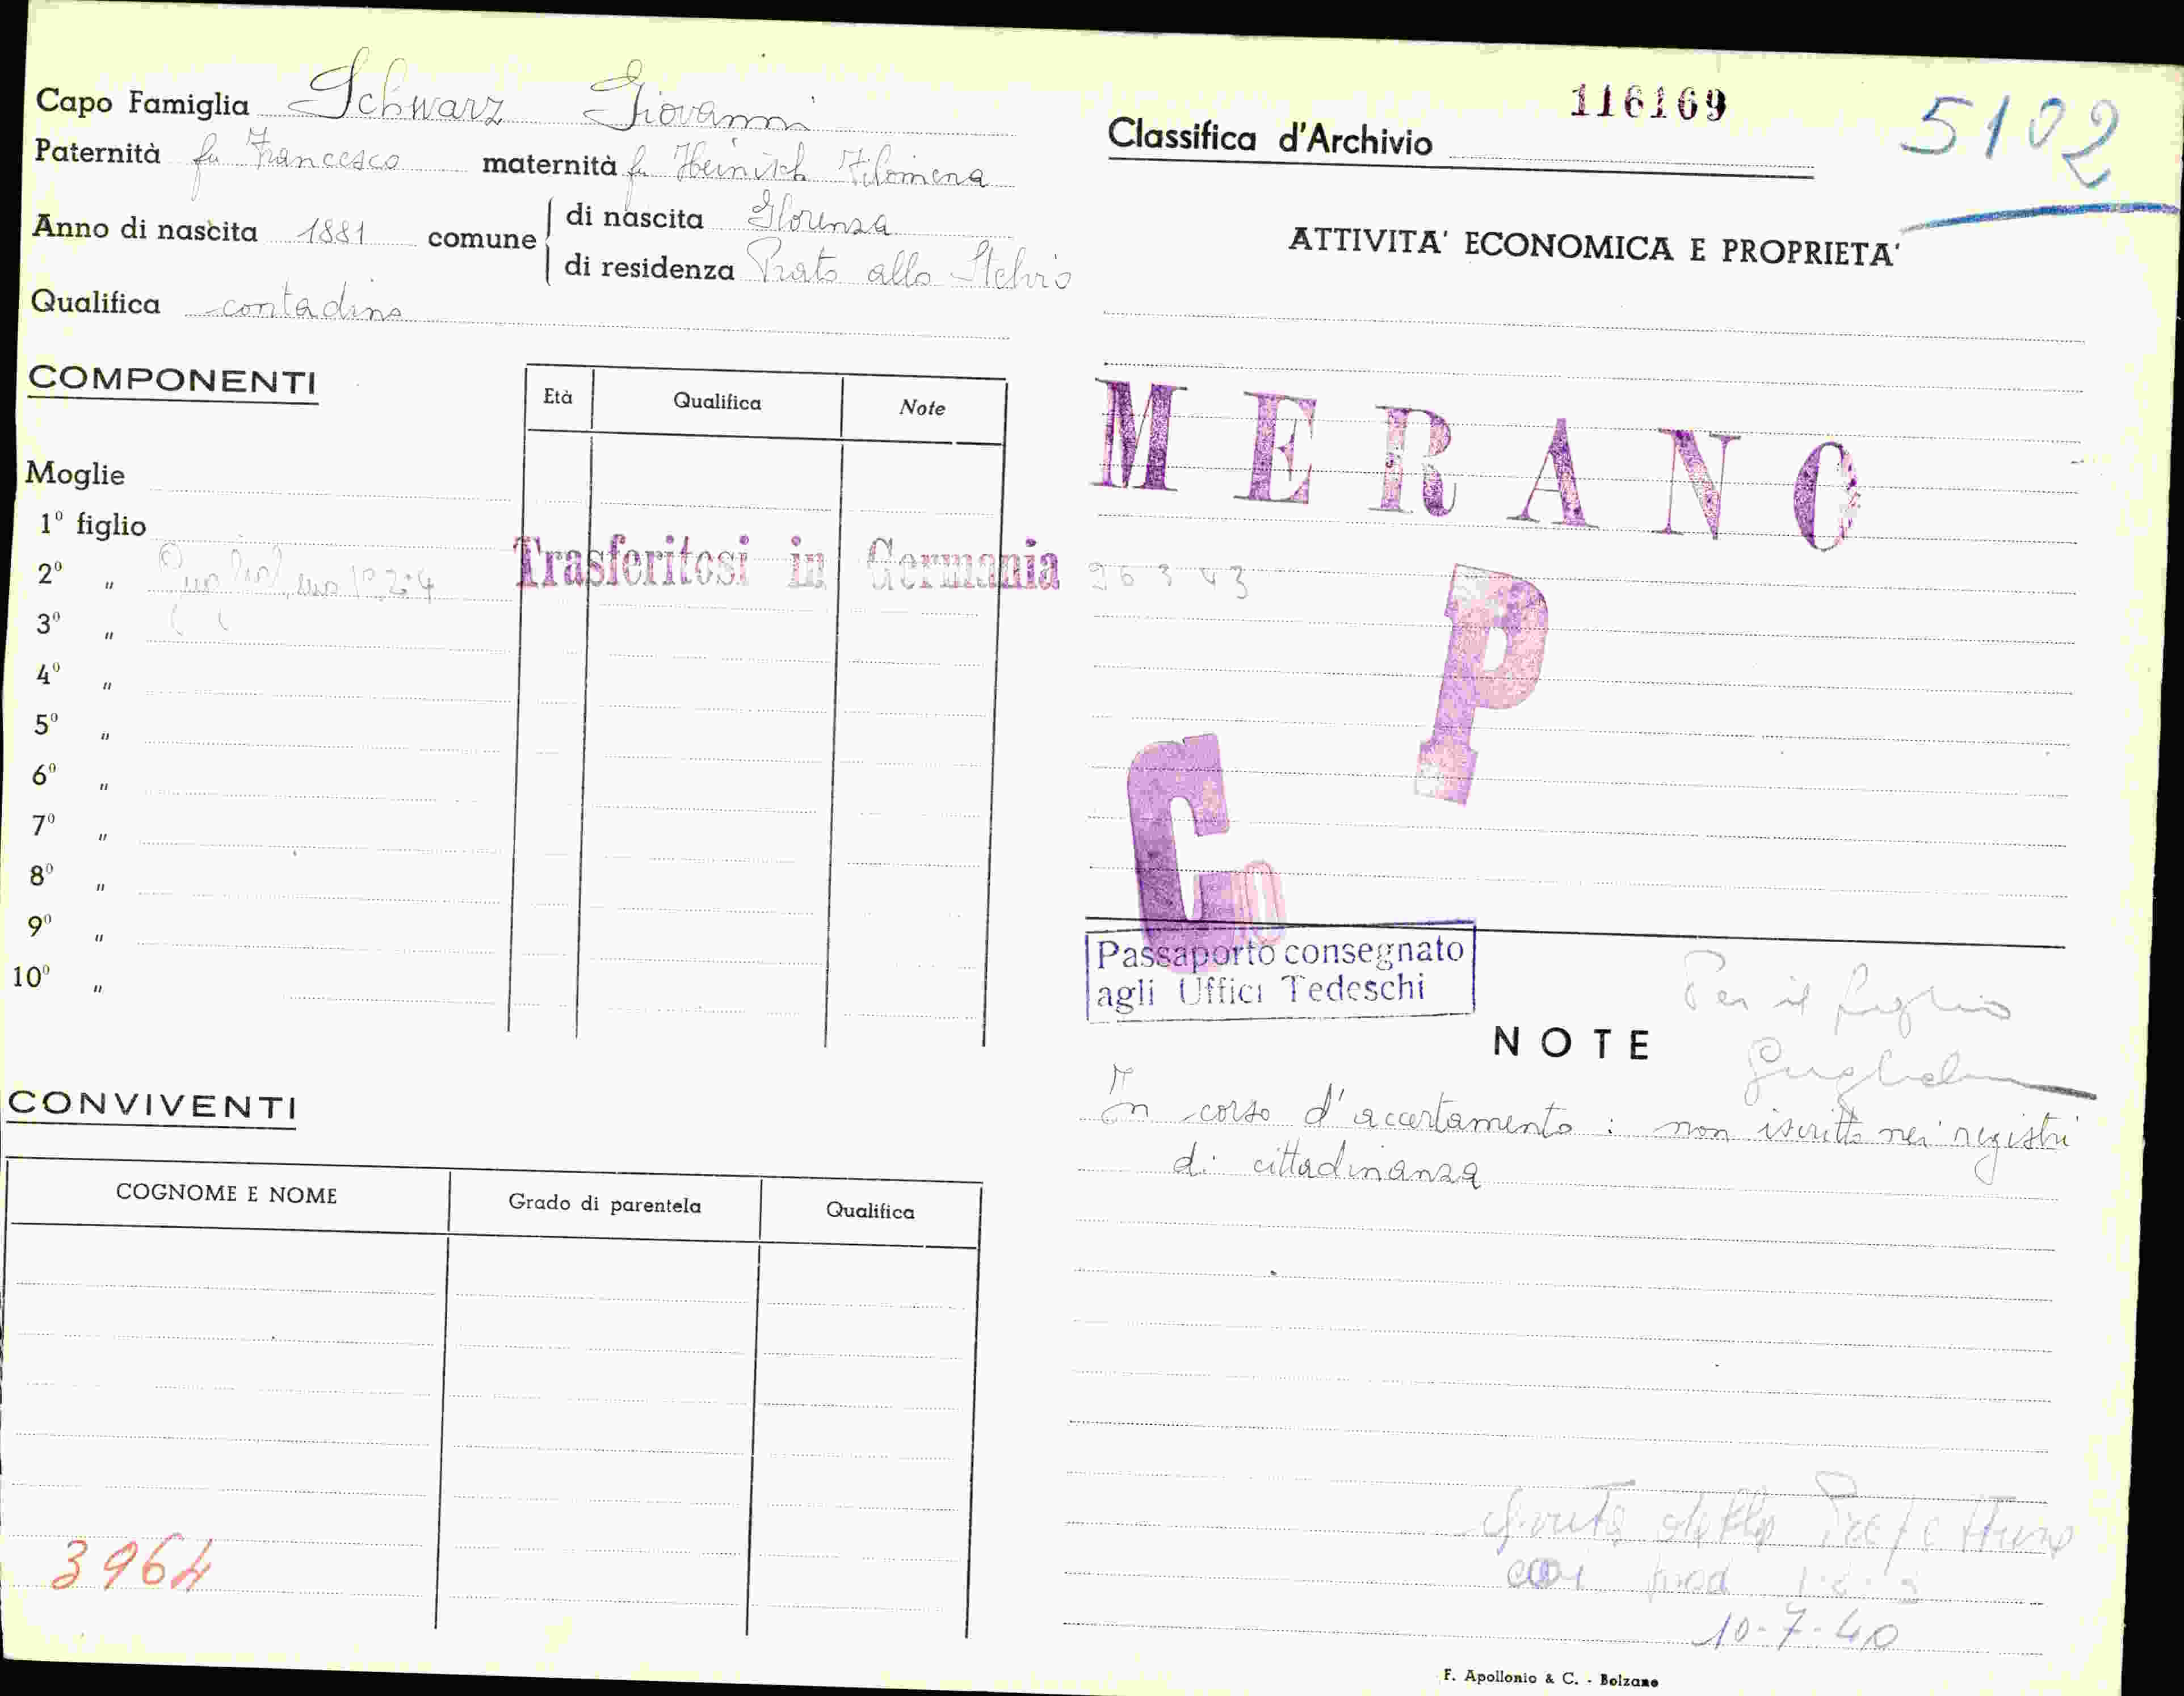 Capo Famiglia Schwarz Giovanni
Paternità fu Francesco maternità fu Heinisch Filomena
Anno di nascita 1881 comune di nascita Glorenza
di residenza Prato allo Stelvio
Qualifica contadino
COMPONENTI
Età Qualifica Note
Moglie
1º figlio
2º "
Trasferitosi in Germania
3º "
4º "
5º "
6º "
7º "
8º "
9º "
10º "
CONVIVENTI
COGNOME E NOME Grado di parentela Qualifica
3964
116169
5102
Classifica d'Archivio
ATTIVITA' ECONOMICA E PROPRIETA'
MERANO
26 3 43
P
C
Passaporto consegnato
agli Uffici Tedeschi
Per il figlio
NOTE
In corso d'accertamento : non iscritto nei registri
di cittadinanza
dalla Prefettura
mod 1-2-3
10-7-40
F. Apollonio & C. - Bolzano